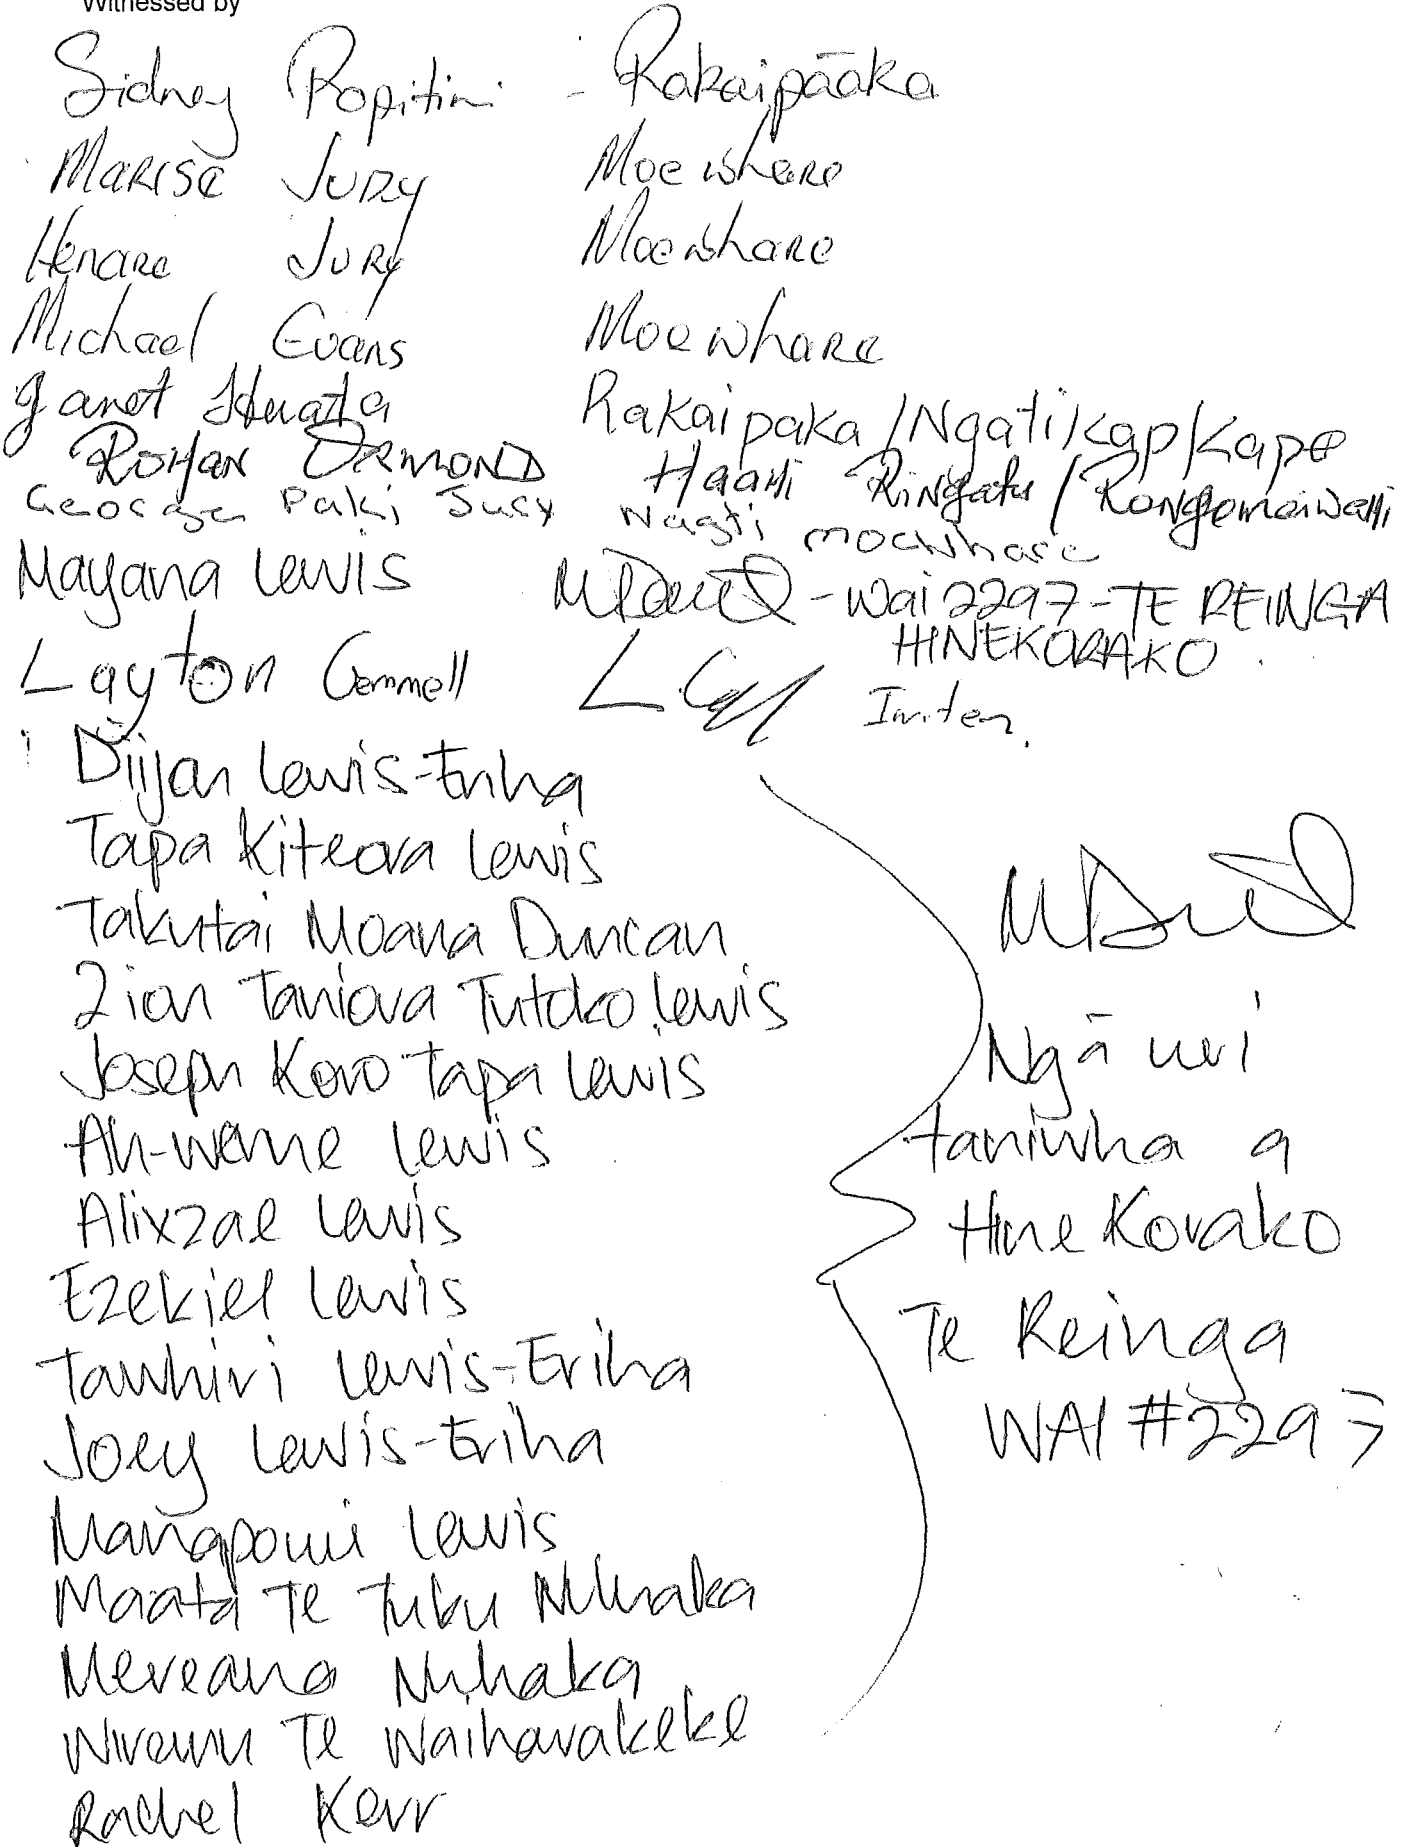 Witnessed by
Sidney Ropitini - Rakaipāaka
Marise Jury Moewhare
Henare Jury Moewhare
Michael Evans Moewhare
Janet Huata Rakaipaka / Ngati
Rohan Ormond Haami Ringatu / Rongomaiwahi
George Paki Jury Nagti moewhare
Mayana Lewis - Wai 2297 - TE REINGA
HINEKORAKO
Layton Gemmell
Diijan Lewis-Eriha
Tapa Kiteora Lewis
Takutai Moana Duncan
Zion Taniora Tutoko Lewis
Joseph Koro Tapa Lewis
Lewis
Alixzae Lewis
Ezekiel Lewis
Tawhiri Lewis-Eriha
Joey Lewis-Eriha
Lewis
Maata Te Tuku Nuhaka
Mereana Nuhaka
Wiremu Te Waiharakeke
Rachel Kerr
Ngā uri
taniwha a
Hine Korako
Te Reinga
WAI #2297